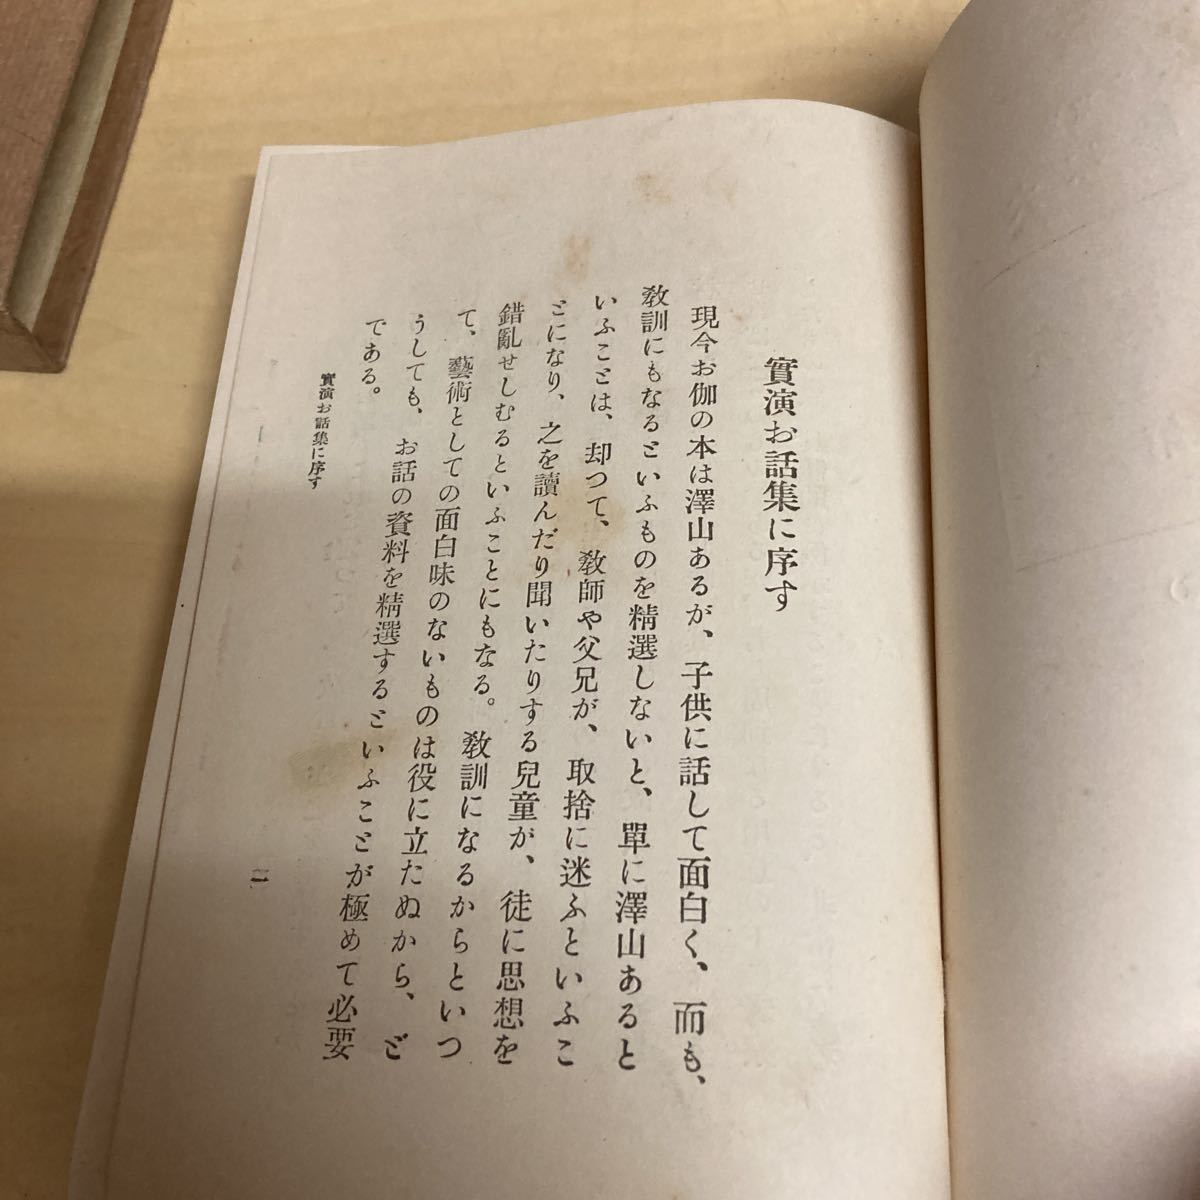 實演お話集に序す
現今お伽の本は澤山あるが、子供に話して面白く、而も、
敎訓にもなるといふものを精選しないと、單に澤山あると
いふことは、却つて、敎師や父兄が、取捨に迷ふといふこ
とになり、之を讀んだり聞いたりする兒童が、徒に思想を
錯亂せしむるといふことにもなる。敎訓になるからといつ
て、藝術としての面白味のないものは役に立たぬから、ど
うしても、お話の資料を精選するといふことが極めて必要
である。
實演お話集に序す